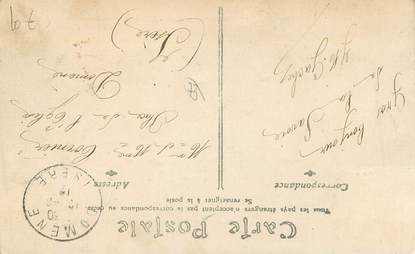 Carte Postale
Tous les pays étrangers n'acceptent pas la correspondance au recto
Se renseigner à la poste
Correspondance
Adresse
Bonjour
de la Savoie
Mr et Mme
Place de l'Eglise
Domène
(Isère)
DOMENE
ISERE
79